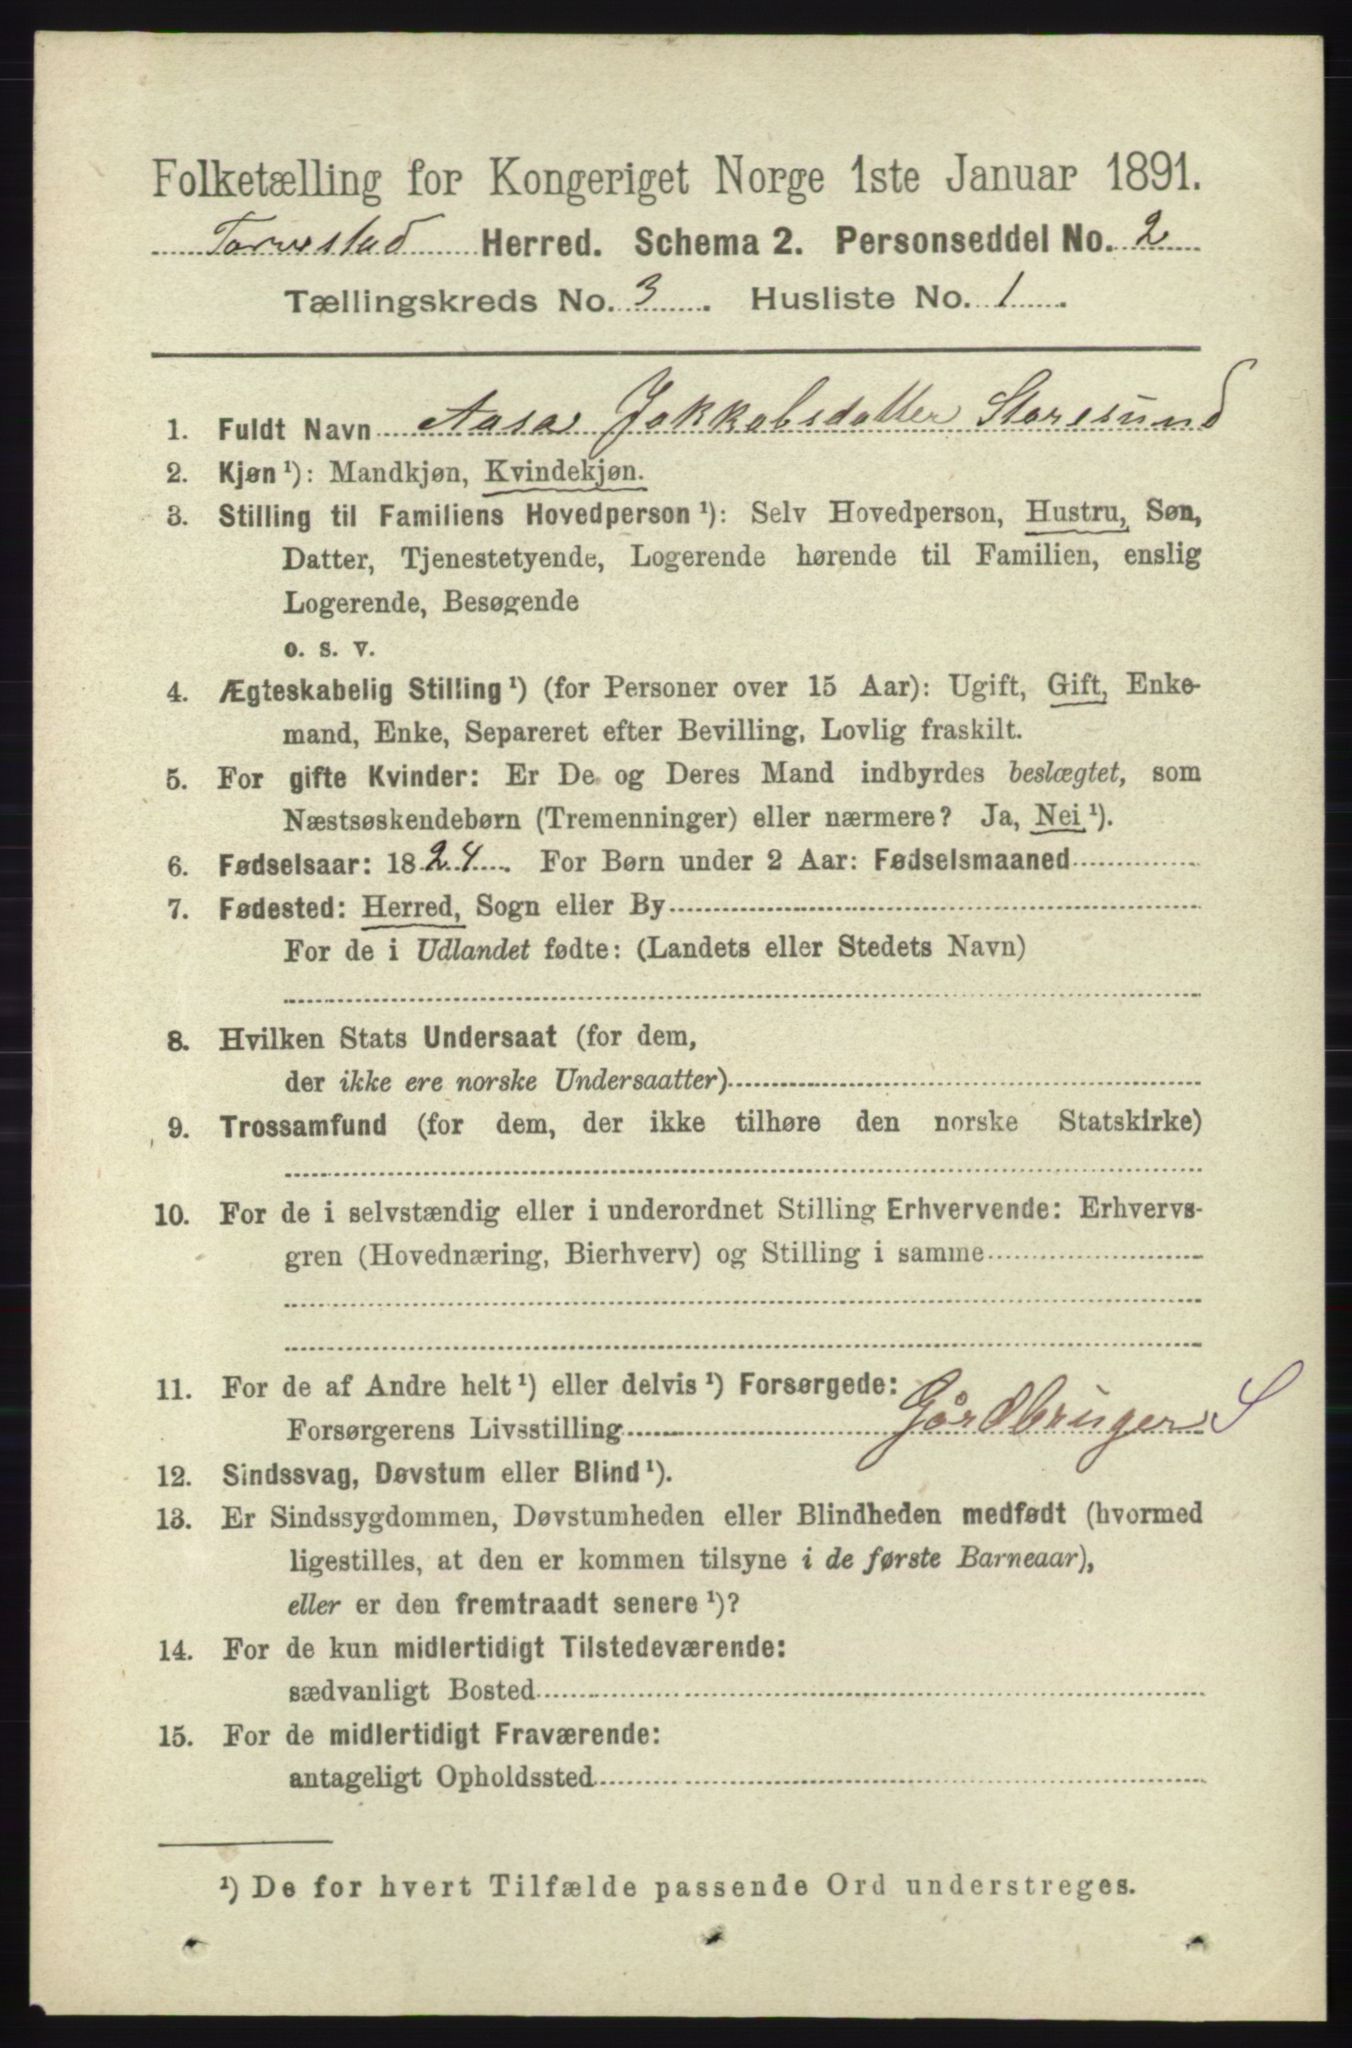 Folketælling for Kongeriget Norge 1ste Januar 1891.
Torvestad Herred. Schema 2. Personseddel No. 2
Tællingskreds No. 3. Husliste No. 1.
1. Fuldt Navn Aasa Jakkabsdatter Storesund
2. Kjøn ¹): Mandkjøn, Kvindekjøn.
3. Stilling til Familiens Hovedperson ¹): Selv Hovedperson, Hustru, Søn,
Datter, Tjenestetyende, Logerende hørende til Familien, enslig
Logerende, Besøgende
o. s. v.
4. Ægteskabelig Stilling ¹) (for Personer over 15 Aar): Ugift, Gift, Enke-
mand, Enke, Separeret efter Bevilling, Lovlig fraskilt.
5. For gifte Kvinder: Er De og Deres Mand indbyrdes beslægtet, som
Næstsøskendebørn (Tremenninger) eller nærmere? Ja, Nei ¹).
6. Fødselsaar: 1824. For Børn under 2 Aar: Fødselsmaaned
7. Fødested: Herred, Sogn eller By
For de i Udlandet fødte: (Landets eller Stedets Navn)
8. Hvilken Stats Undersaat (for dem,
der ikke ere norske Undersaatter)
9. Trossamfund (for dem, der ikke tilhøre den norske Statskirke)
10. For de i selvstændig eller i underordnet Stilling Erhvervende: Erhvervs-
gren (Hovednæring, Bierhverv) og Stilling i samme
11. For de af Andre helt ¹) eller delvis ¹) Forsørgede:
Forsørgerens Livsstilling Gårdbruger S
12. Sindssvag, Døvstum eller Blind ¹).
13. Er Sindssygdommen, Døvstumheden eller Blindheden medfødt (hvormed
ligestilles, at den er kommen tilsyne i de første Barneaar),
eller er den fremtraadt senere ¹)?
14. For de kun midlertidigt Tilstedeværende:
sædvanligt Bosted
15. For de midlertidigt Fraværende:
antageligt Opholdssted
¹) De for hvert Tilfælde passende Ord understreges.